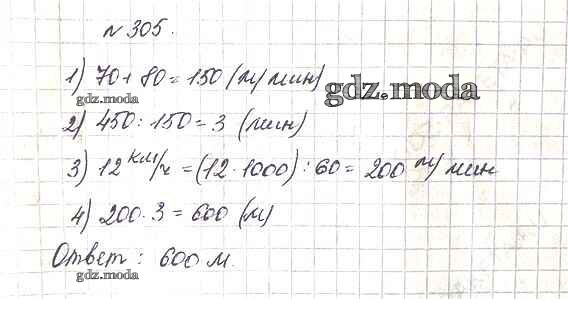 № 305.
1) 70 + 80 = 150 (м/мин)
gdz.moda
gdz.moda
2) 450 : 150 = 3 (мин)
3) 12 км/ч = (12 · 1000) : 60 = 200 м/мин
4) 200 · 3 = 600 (м)
Ответ : 600 м.
gdz.moda